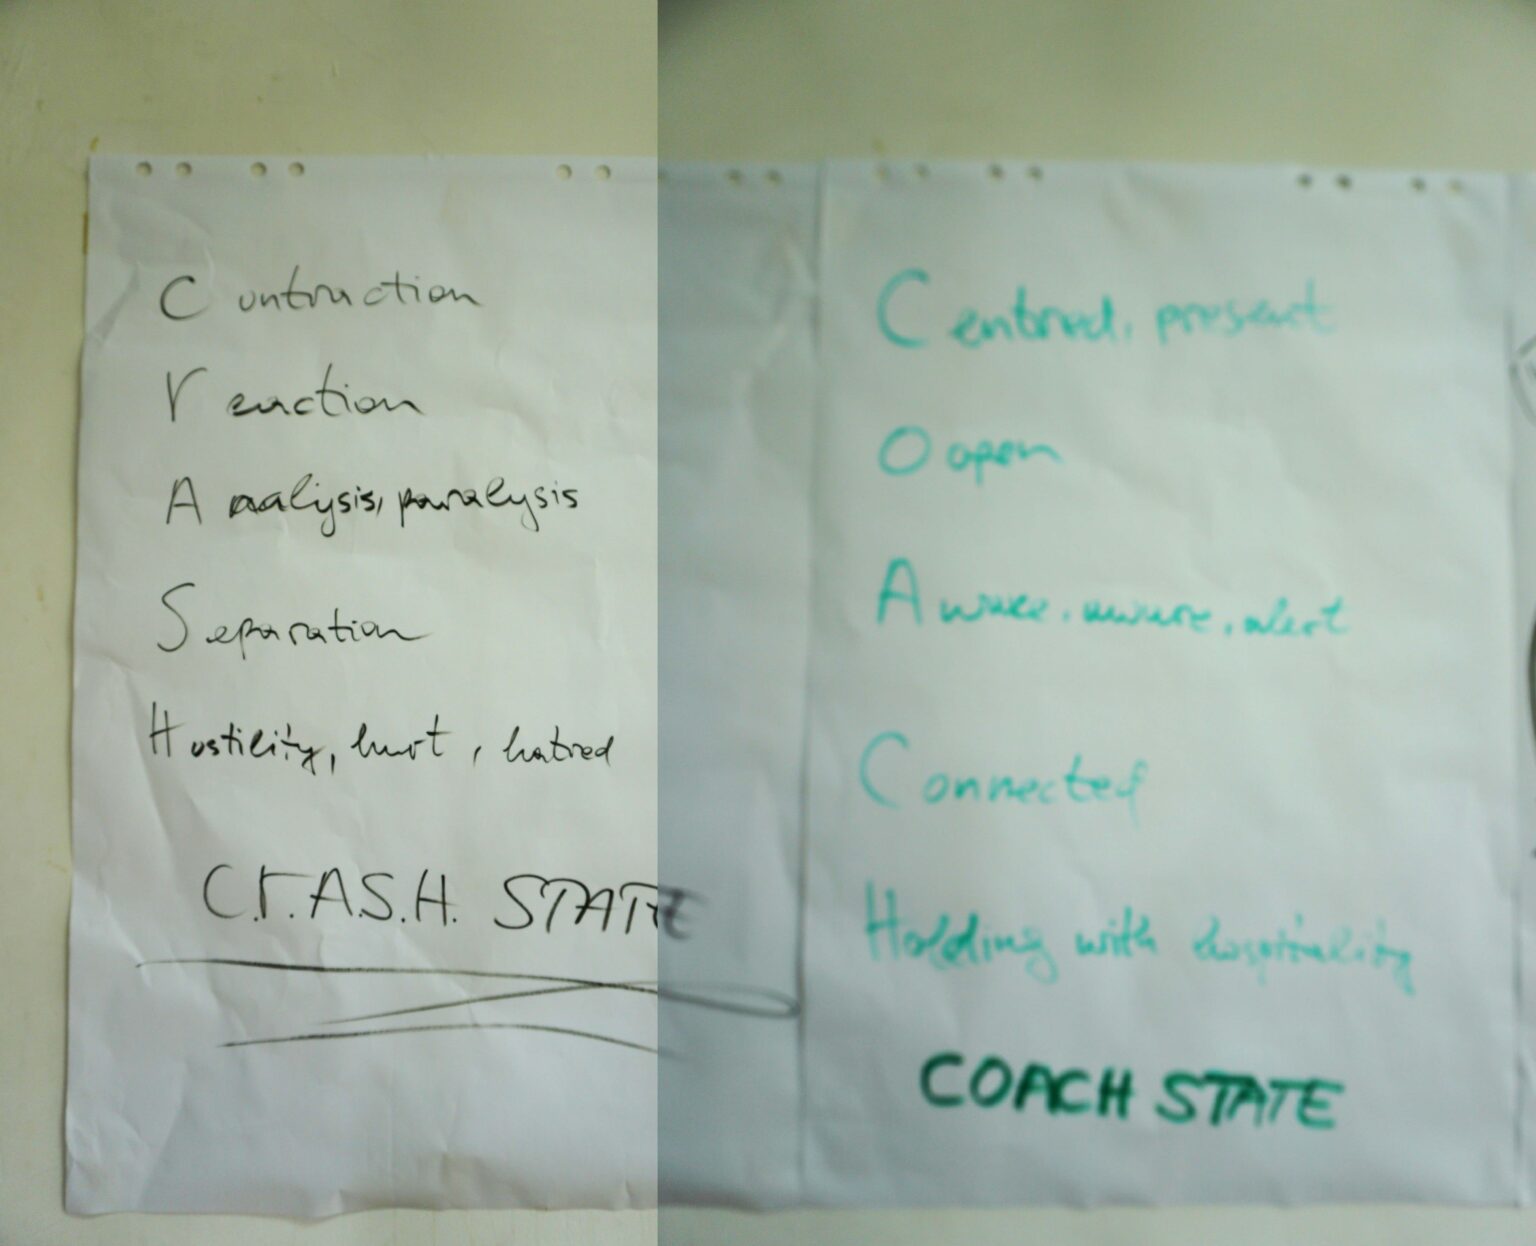 C ontraction
r eaction
A aalysis, paralysis
S eparation
H ostility, hurt, hatred
C.r.A.S.H. STATE
C entred, present
O open
A wake, aware, alert
C onnected
H olding with hospitality
COACH STATE